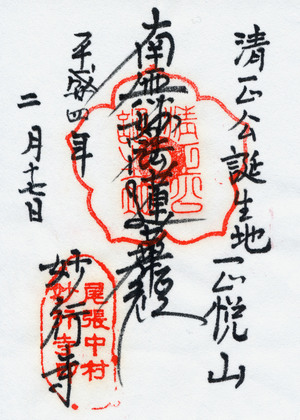 清正公誕生地 正悦山
南無妙法蓮華経
平成四年
二月十七日
妙行寺
清正公
誕生地
尾張中村
妙行寺